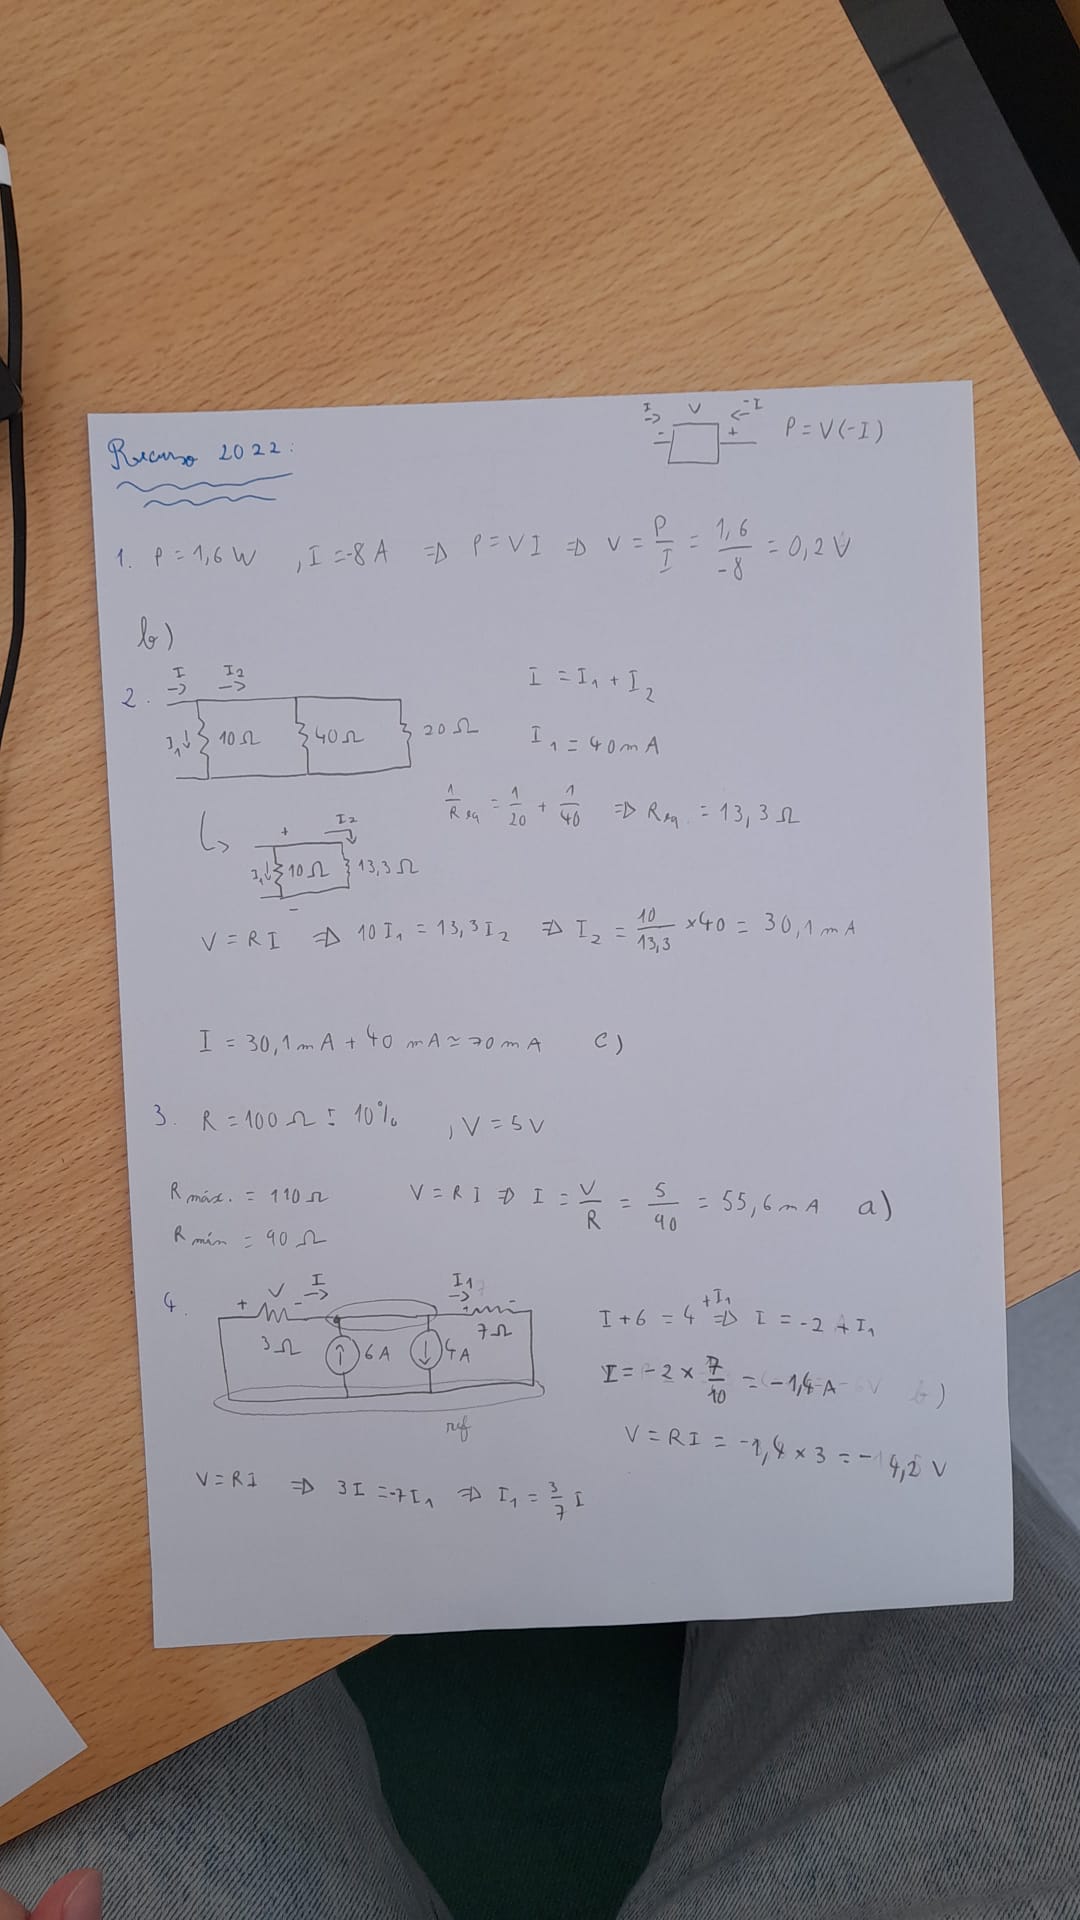 Recurso 2022:
I V -I
-> <-
- + P = V(-I)
1. P = 1,6 W , I = -8 A => P = V I => V = P/I = 1,6/-8 = 0,2 V
b)
2. I -> I2 -> I = I1 + I2
I1↓ 10 Ω 40 Ω 20 Ω I1 = 40 mA
1/Req = 1/20 + 1/40 => Req. = 13,3 Ω
↳ + I2
I1↓ 10 Ω 13,3 Ω
-
V = R I => 10 I1 = 13,3 I2 => I2 = 10/13,3 ×40 = 30,1 mA
I = 30,1 mA + 40 mA ≃ 70 mA c)
3. R = 100 Ω ± 10% , V = 5 V
Rmáx. = 110 Ω V = R I => I = V/R = 5/90 = 55,6 mA a)
Rmín = 90 Ω
4. + V - I -> I1 -> + -
3 Ω 6 A 4 A 7 Ω
ref
I + 6 = 4 + I1 => I = -2 + I1
I = -2 × 7/10 = -1,4 A b)
V = R I = -1,4 × 3 = -4,2 V
V = R I => 3 I = -7 I1 => I1 = 3/7 I